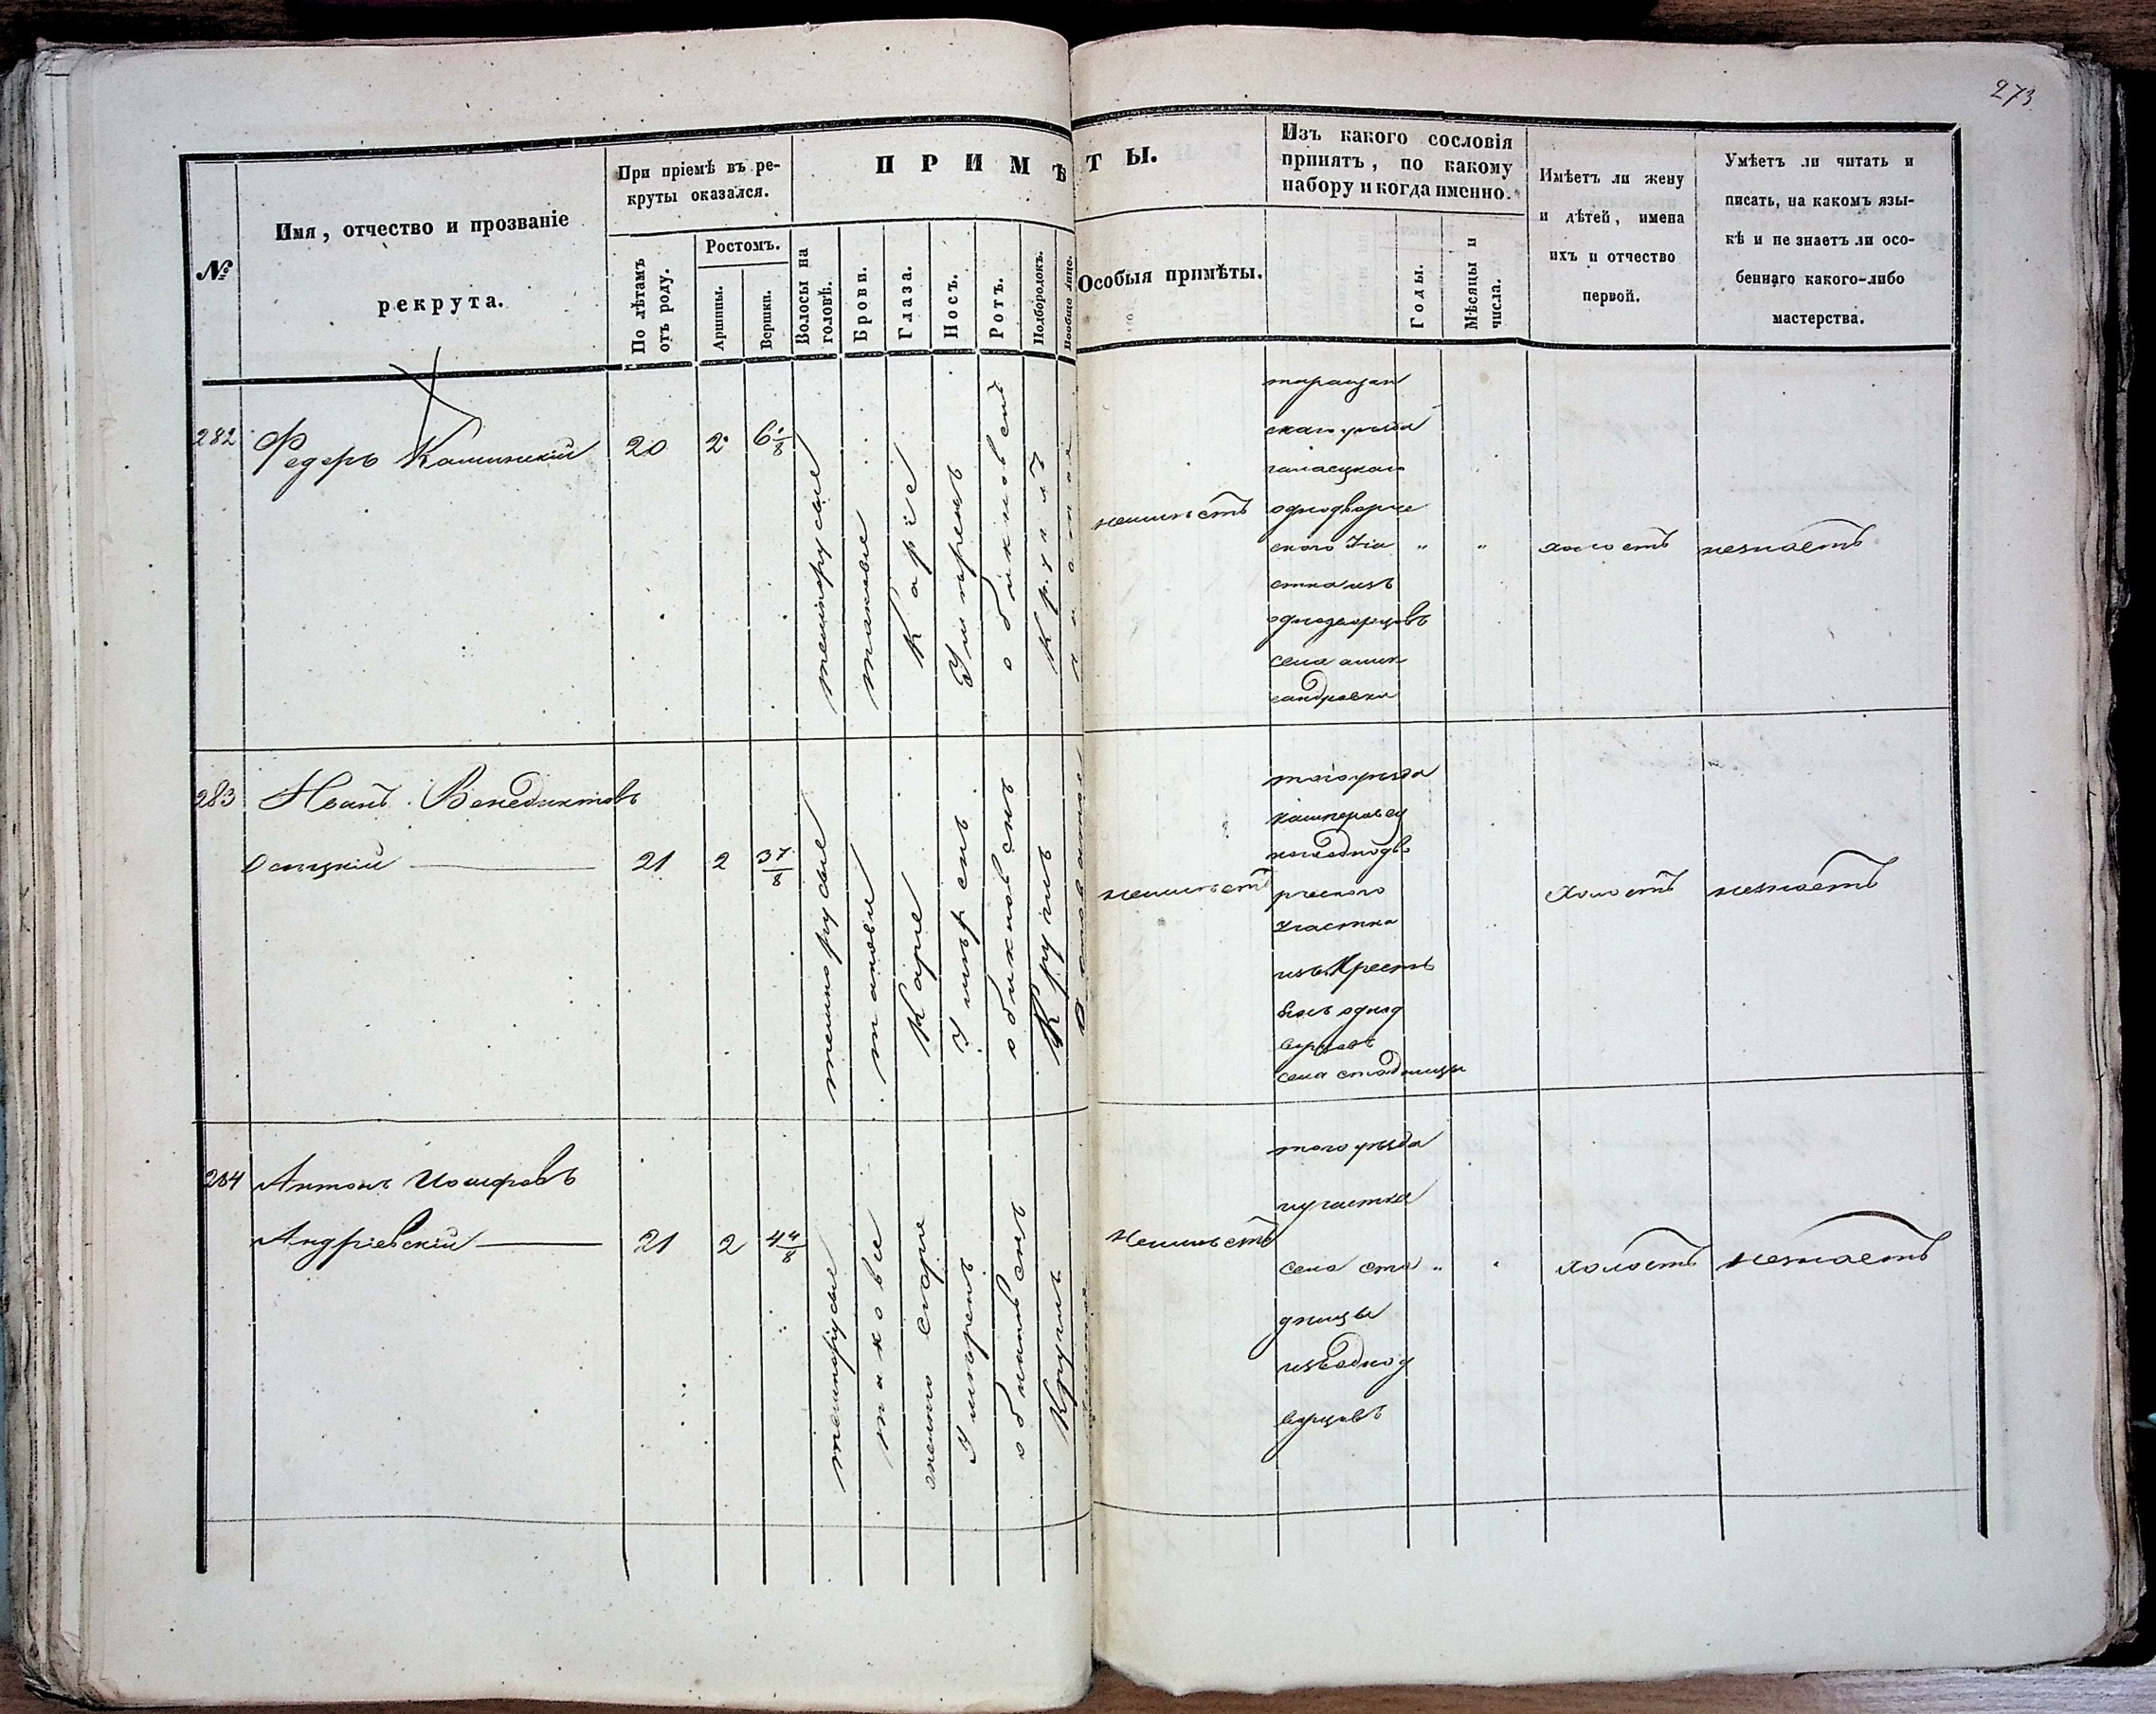 273
№
Имя, отчество и прозваніе
рекрута.
При пріемѣ въ ре-
круты оказался.
По лѣтамъ
отъ роду.
Ростомъ.
Аршины.
Вершки.
ПРИМѢТЫ.
Волосы на
головѣ.
Брови.
Глаза.
Носъ.
Ротъ.
Подбородокъ.
Вообще лице.
Особыя примѣты.
Изъ какого сословія
принятъ, по какому
набору и когда именно.
Годы.
Мѣсяцы и
числа.
Имѣетъ ли жену
и дѣтей, имена
ихъ и отчество
первой.
Умѣетъ ли читать и
писать, на какомъ язы-
кѣ и не знаетъ ли осо-
беннаго какого-либо
мастерства.
282
Федоръ
20
2
6
темнорусые
таковые
Каріе
Умѣренъ
обикновенъ
Круглъ
неимѣетъ
таращан
скаго уѣзда
однодворче
ского Уча
стка изъ
однодворцовъ
села алек
сандровки
"
"
холостъ
незнаетъ
283
Иванъ Венедиктовъ
Осецкій
21
2
3 7/8
темнорусые
такови
Карие
Умѣренъ
обикновенъ
Круглъ
неимѣетъ
того уѣзда
кашперовец
кого однодво
рческого
Участка
изъ Крестъ
янъ однод
ворцовъ
села стадницы
холостъ
незнаетъ
284
Антонъ Иосифовъ
Андріевскій
21
2
4 4/8
темнорусые
такови
Умѣренъ
обикновенъ
Круглъ
Неимѣетъ
того уѣзда
иучастка
села ста
дницы
изъ однод
ворцовъ
"
"
холостъ
незнаетъ